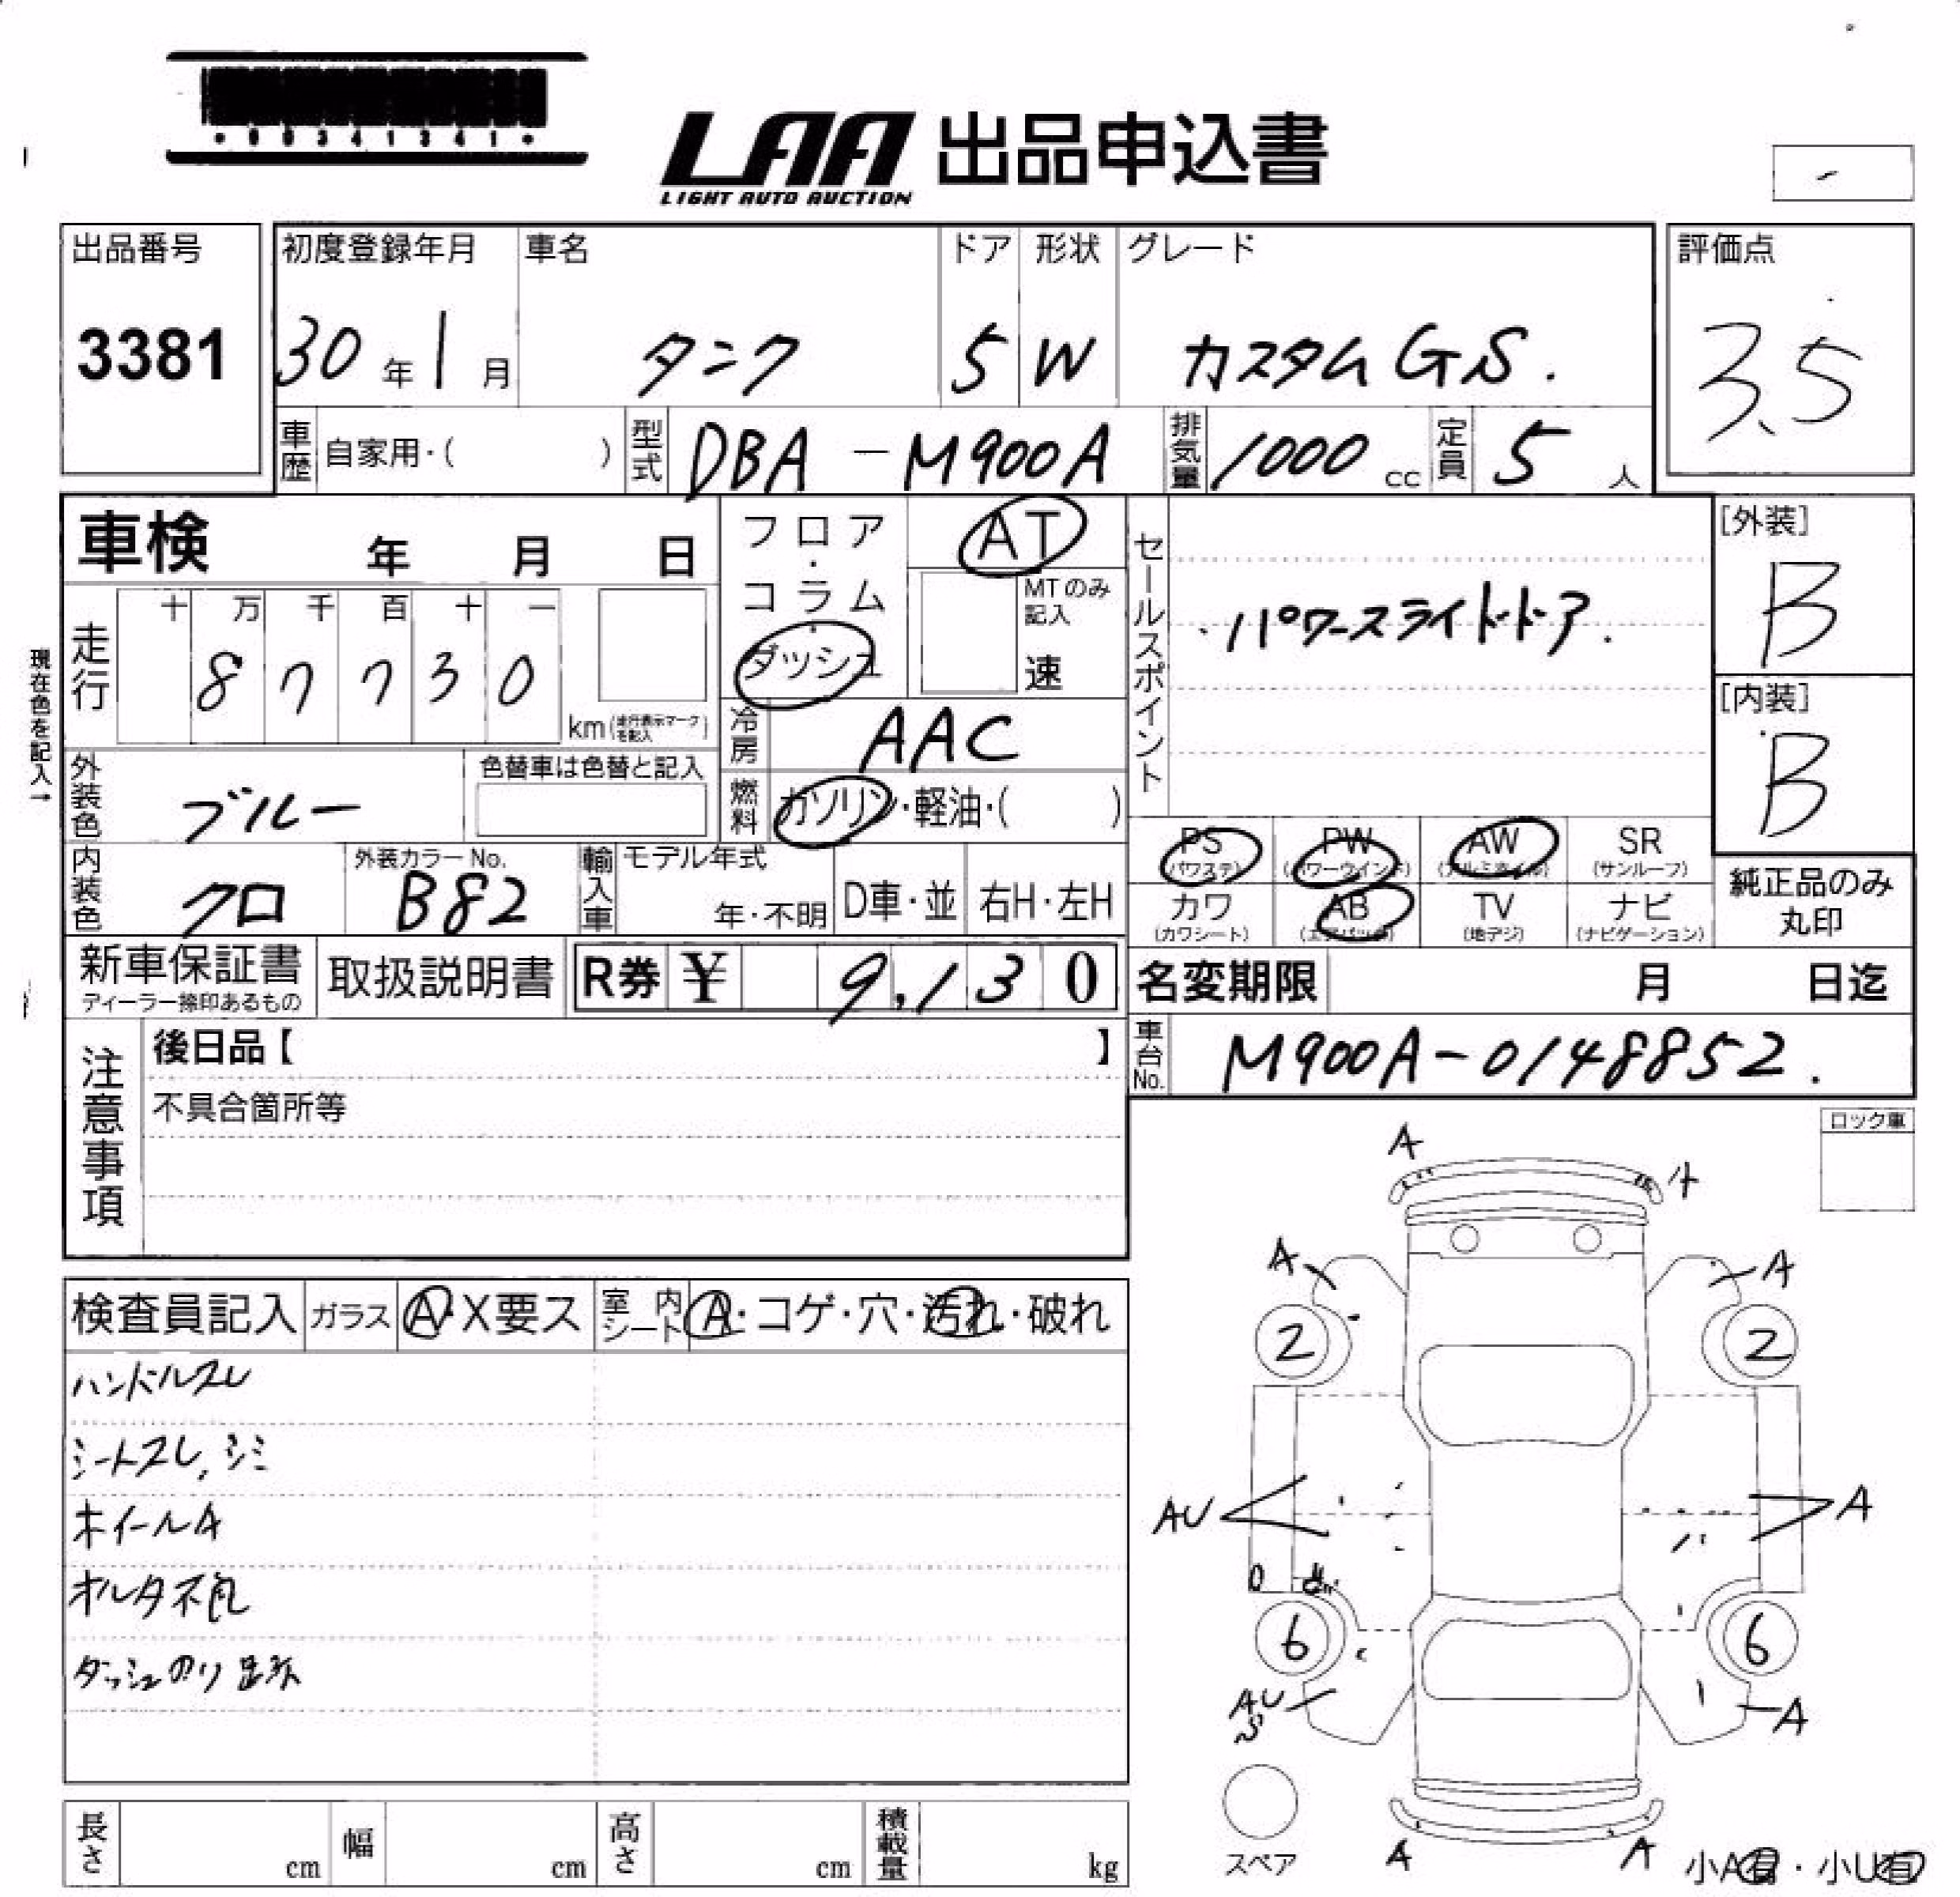 00341341
LAA 出品申込書
LIGHT AUTO AUCTION
-
出品番号 初度登録年月 車名 ドア 形状 グレード 評価点
3381 30年1月 タンク 5 W カスタムGS. 3.5
車歴 自家用・( ) 型式 DBA-M900A 排気量 1000cc 定員 5人
車検 年 月 日
フロア・コラム・ダッシュ
AT
MTのみ記入
速
セールスポイント
・パワースライドドア.
[外装]
B
[内装]
B
現在色を記入→
走行 十 万 千 百 十 一
8 7 7 3 0
km(走行表示マークを記入)
冷房 AAC
燃料 ガソリン・軽油・( )
外装色 ブルー 色替車は色替と記入
内装色 クロ 外装カラーNo. B82
輸入車 モデル年式 年・不明 D車・並 右H・左H
PS(パワステ) PW(パワーウインド) AW(アルミホイル) SR(サンルーフ)
カワ(カワシート) AB(エアバック) TV(地デジ) ナビ(ナビゲーション)
純正品のみ
丸印
新車保証書 ディーラー捺印あるもの 取扱説明書 R券 ¥ 9,130
名変期限 月 日迄
車台No. M900A-0148852.
注意事項
後日品【 】
不具合箇所等
ロック車
検査員記入 ガラス A・X要ス 室内シート A・コゲ・穴・汚れ・破れ
ハンドルスレ
シートスレ,シミ
ホイールA
オルタ不良
ダッシュのり跡
A
A
A
A
2
2
AU
A
6
6
AU
S
A
スペア
A
A
小A有・小U有
長さ cm 幅 cm 高さ cm 積載量 kg